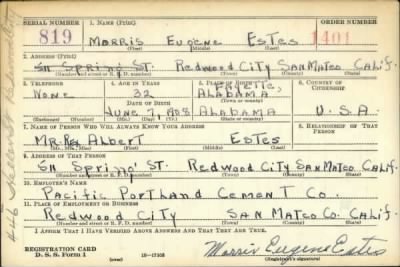 SERIAL NUMBER 1. NAME (Print) ORDER NUMBER
819 MORRIS EUGENE ESTES 1401
(First) (Middle) (Last)
2. ADDRESS (Print)
SN SPRING ST. REDWOOD CITY SAN MATEO CALIF.
(Number and street or R. F. D. number) (Town) (County) (State)
3. TELEPHONE 4. AGE IN YEARS 5. PLACE OF BIRTH 6. COUNTRY OF CITIZENSHIP
NONE 32 FAYETTE, ALABAMA
DATE OF BIRTH (Town or county)
JUNE 7, 1908 ALABAMA U.S.A.
(Mo.) (Day) (Yr.) (State or country)
7. NAME OF PERSON WHO WILL ALWAYS KNOW YOUR ADDRESS 8. RELATIONSHIP OF THAT PERSON
MR. REX ALBERT ESTES
(Mr., Mrs., Miss) (First) (Middle) (Last)
9. ADDRESS OF THAT PERSON
SN SPRING ST. REDWOOD CITY SAN MATEO CALIF.
(Number and street or R. F. D. number) (Town) (County) (State)
10. EMPLOYER'S NAME
PACIFIC PORTLAND CEMENT CO.
11. PLACE OF EMPLOYMENT OR BUSINESS
REDWOOD CITY SAN MATEO CO. CALIF.
(Number and street or R. F. D. number) (Town) (County) (State)
I AFFIRM THAT I HAVE VERIFIED ABOVE ANSWERS AND THAT THEY ARE TRUE.
REGISTRATION CARD
D. S. S. Form 1 16-17105 Morris Eugene Estes
(over) (Registrant's signature)